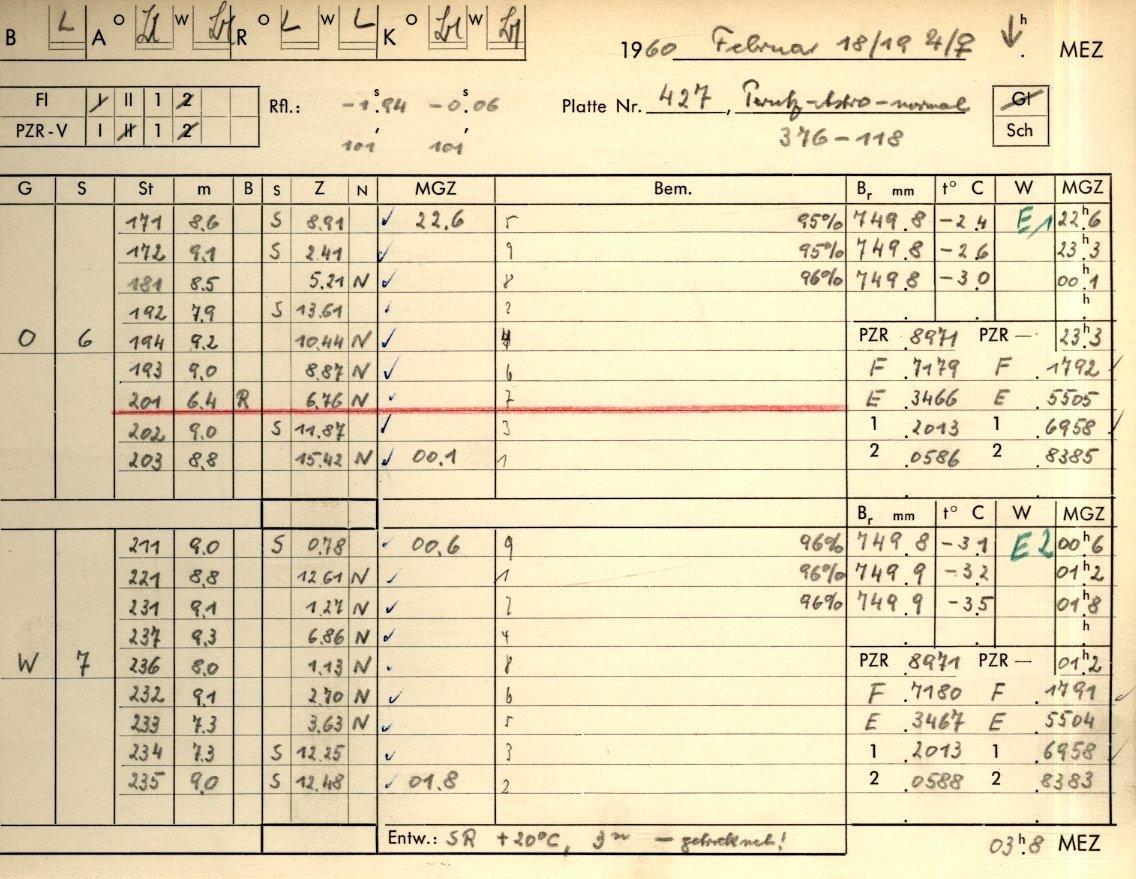 B L A O W R O L W L K O W
1960 Februar 18/19 h MEZ
FI I II 1 2
PZR-V I II 1 2
Rfl.: -1.s94 -0.s06
101 101
Platte Nr. 427, Perutz-Astro-normal
376-118
GI
Sch
G S St m B S Z N MGZ Bem. Br mm t° C W MGZ
171 8.6 S 8.91 ✓ 22.6 5 95% 749.8 -2.4 E1 22h.6
172 9.1 S 2.41 ✓ 9 95% 749.8 -2.6 23h.3
181 8.5 5.21 N ✓ 8 96% 749.8 -3.0 00h.1
192 7.9 S 13.61 2 h
O 6 194 9.2 10.44 N ✓ 4 PZR .8971 PZR — 23h.3
193 9.0 8.87 N ✓ 6 F .7179 F .1792 ✓
201 6.4 R 6.76 N 7 E .3466 E .5505
202 9.0 S 11.87 ✓ 3 1 .2013 1 .6958 ✓
203 8.8 15.42 N ✓ 00.1 1 2 .0586 2 .8385
Br mm t° C W MGZ
211 9.0 S 0.78 00.6 9 96% 749.8 -3.1 E2 00h.6
221 8.8 12.61 N ✓ 1 96% 749.9 -3.2 01h.2
231 9.1 1.27 N ✓ 7 96% 749.9 -3.5 01h.8
237 9.3 6.86 N ✓ 4 h
W 7 236 8.0 1.13 N 8 PZR .8971 PZR — 01h.2
232 9.1 2.70 N ✓ 6 F .7180 F .1791 ✓
233 7.3 3.63 N ✓ 5 E .3467 E .5504
234 7.3 S 12.25 ✓ 3 1 .2013 1 .6958 ✓
235 9.0 S 12.48 ✓ 01.8 2 2 .0588 2 .8383
Entw.: SR +20°C, 3m - getrocknet! 03h.8 MEZ